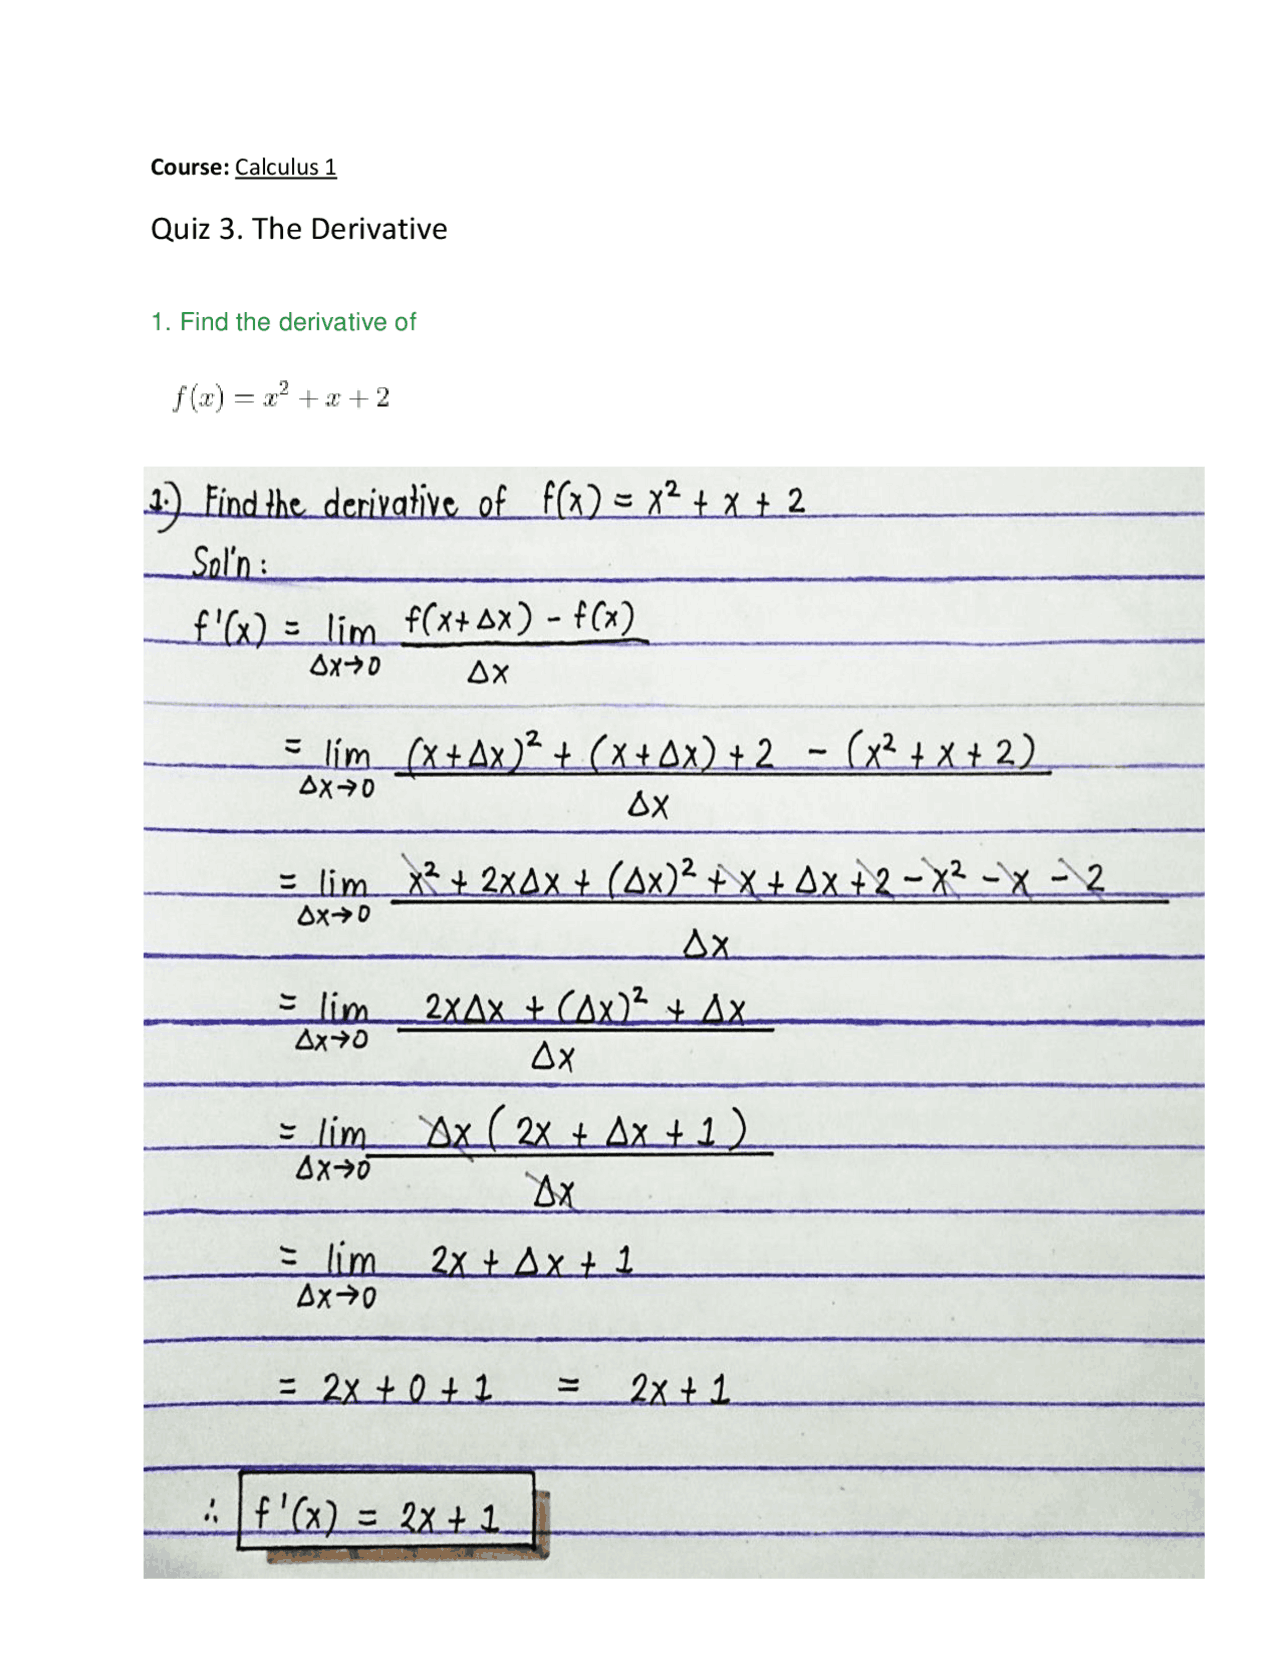 Course: Calculus 1
Quiz 3. The Derivative
1. Find the derivative of
f(x) = x² + x + 2
1.) Find the derivative of f(x) = x² + x + 2
Sol'n:
f'(x) = lim Δx→0 (f(x+Δx) - f(x)) / Δx
= lim Δx→0 ((x+Δx)² + (x+Δx) + 2 - (x² + x + 2)) / Δx
= lim Δx→0 (x² + 2xΔx + (Δx)² + x + Δx + 2 - x² - x - 2) / Δx
= lim Δx→0 (2xΔx + (Δx)² + Δx) / Δx
= lim Δx→0 Δx(2x + Δx + 1) / Δx
= lim Δx→0 2x + Δx + 1
= 2x + 0 + 1 = 2x + 1
∴ f'(x) = 2x + 1